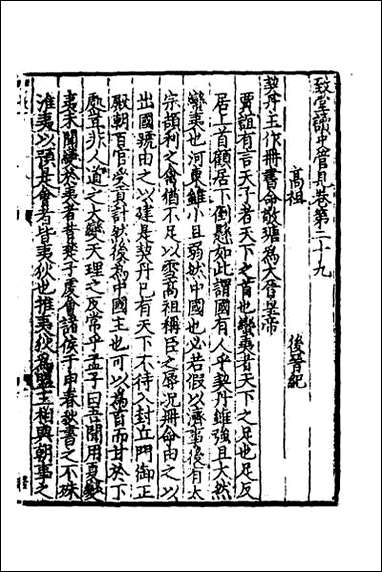 致堂讀史管見卷第二十九
高祖　後晉紀
契丹主作冊書命敬瑭為大晉皇帝
賈誼有言天子者天下之首也蠻夷者天下之足也足反
居上首顧居下倒懸如此謂國有人乎契丹雖強且大然
蠻夷也河東雖小且弱然中國也必若假以濟事後有太
宗頡利之會猶不足以雪高祖稱臣之辱況冊命由之以
出國號由之以建是契丹已有天下不待入封丘門御正
殿朝百官受貢計然後為中國主也可以為首而甘於下
處豈非人道之大變天理之反常乎孟子曰吾聞用夏變
夷未聞變於夷者昔楚子虔會諸侯于申春秋書之不殊
淮夷以預其會者皆夷狄也推夷狄為盟主相與朝事之